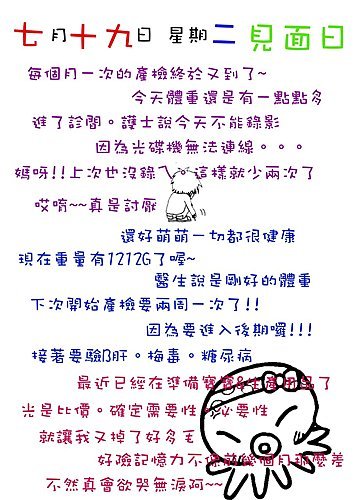 七月十九日 星期二見面日
每個月一次的產檢終於又到了~
今天體重還是有一點點多
進了診間。護士說今天不能錄影
因為光碟機無法連線。。。
媽呀!!上次也沒錄 這樣就少兩次了
哎唷~~真是討厭
還好萌萌一切都很健康
現在重量有1212G了喔~
醫生說是剛好的體重
下次開始產檢要兩周一次了!!
因為要進入後期囉!!!
接著要驗B肝。梅毒。糖尿病
最近已經在準備寶寶&生產用品了
光是比價。確定需要性。必要性
就讓我又掉了好多毛
好險記憶力不像前幾個月那麼差
不然真會欲哭無淚阿~~